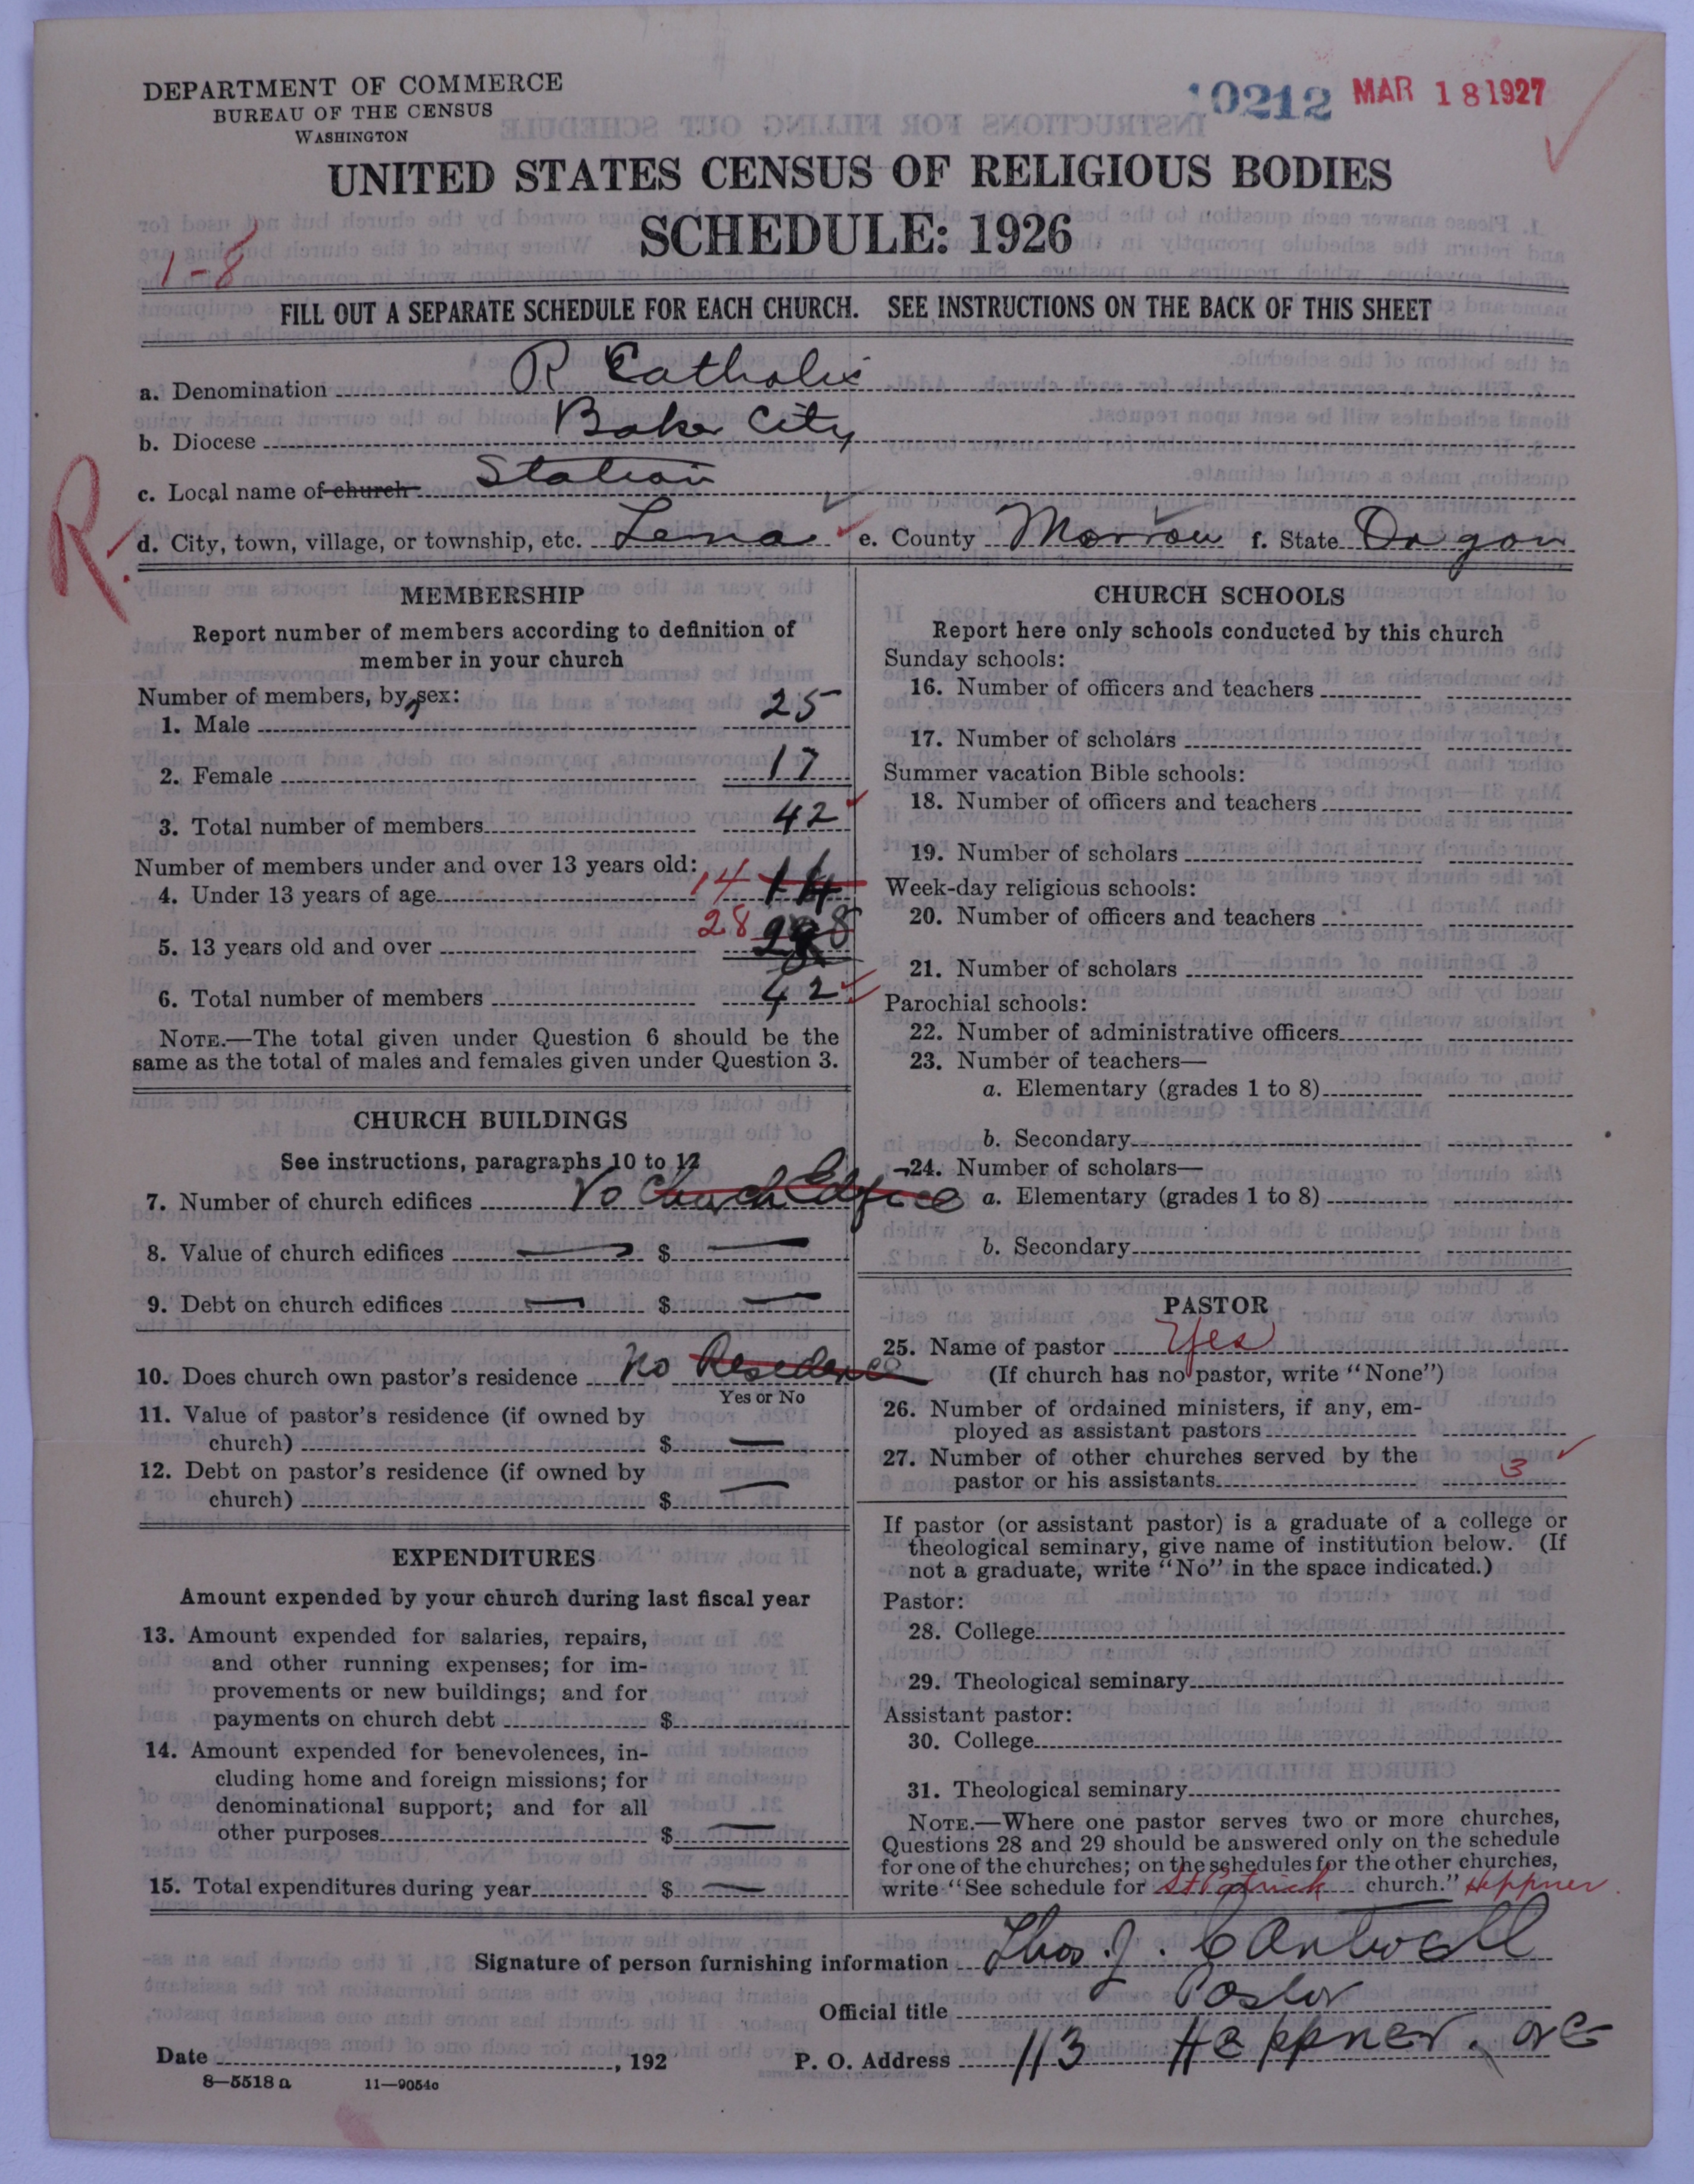 DEPARTMENT OF COMMERCE
BUREAU OF THE CENSUS
WASHINGTON
10212 MAR 18 1927
UNITED STATES CENSUS OF RELIGIOUS BODIES
SCHEDULE: 1926
1-8
FILL OUT A SEPARATE SCHEDULE FOR EACH CHURCH. SEE INSTRUCTIONS ON THE BACK OF THIS SHEET
a. Denomination R Catholic
b. Diocese Baker City
c. Local name of church Station
R. d. City, town, village, or township, etc. Lena e. County Morrow f. State Oregon
MEMBERSHIP
Report number of members according to definition of
member in your church
Number of members, by sex:
1. Male 25
2. Female 17
3. Total number of members 42
Number of members under and over 13 years old:
4. Under 13 years of age 14 14
5. 13 years old and over 28 28
6. Total number of members 42
NOTE.—The total given under Question 6 should be the
same as the total of males and females given under Question 3.
CHURCH BUILDINGS
See instructions, paragraphs 10 to 12
7. Number of church edifices No Church Edifice
8. Value of church edifices — $ —
9. Debt on church edifices — $ —
10. Does church own pastor's residence No Residence
Yes or No
11. Value of pastor's residence (if owned by
church) $ —
12. Debt on pastor's residence (if owned by
church) $ —
EXPENDITURES
Amount expended by your church during last fiscal year
13. Amount expended for salaries, repairs,
and other running expenses; for im-
provements or new buildings; and for
payments on church debt $
14. Amount expended for benevolences, in-
cluding home and foreign missions; for
denominational support; and for all
other purposes $ —
15. Total expenditures during year $ —
CHURCH SCHOOLS
Report here only schools conducted by this church
Sunday schools:
16. Number of officers and teachers
17. Number of scholars
Summer vacation Bible schools:
18. Number of officers and teachers
19. Number of scholars
Week-day religious schools:
20. Number of officers and teachers
21. Number of scholars
Parochial schools:
22. Number of administrative officers
23. Number of teachers—
a. Elementary (grades 1 to 8)
b. Secondary
24. Number of scholars—
a. Elementary (grades 1 to 8)
b. Secondary
PASTOR
25. Name of pastor Yes
(If church has no pastor, write "None")
26. Number of ordained ministers, if any, em-
ployed as assistant pastors
27. Number of other churches served by the
pastor or his assistants 3
If pastor (or assistant pastor) is a graduate of a college or
theological seminary, give name of institution below. (If
not a graduate, write "No" in the space indicated.)
Pastor:
28. College
29. Theological seminary
Assistant pastor:
30. College
31. Theological seminary
NOTE.—Where one pastor serves two or more churches,
Questions 28 and 29 should be answered only on the schedule
for one of the churches; on the schedules for the other churches,
write "See schedule for St Patrick church." Heppner
Signature of person furnishing information Thos. J. Cantwell
Official title Pastor
Date , 192 P. O. Address 113 Heppner. ore
8—5518a 11—9054c